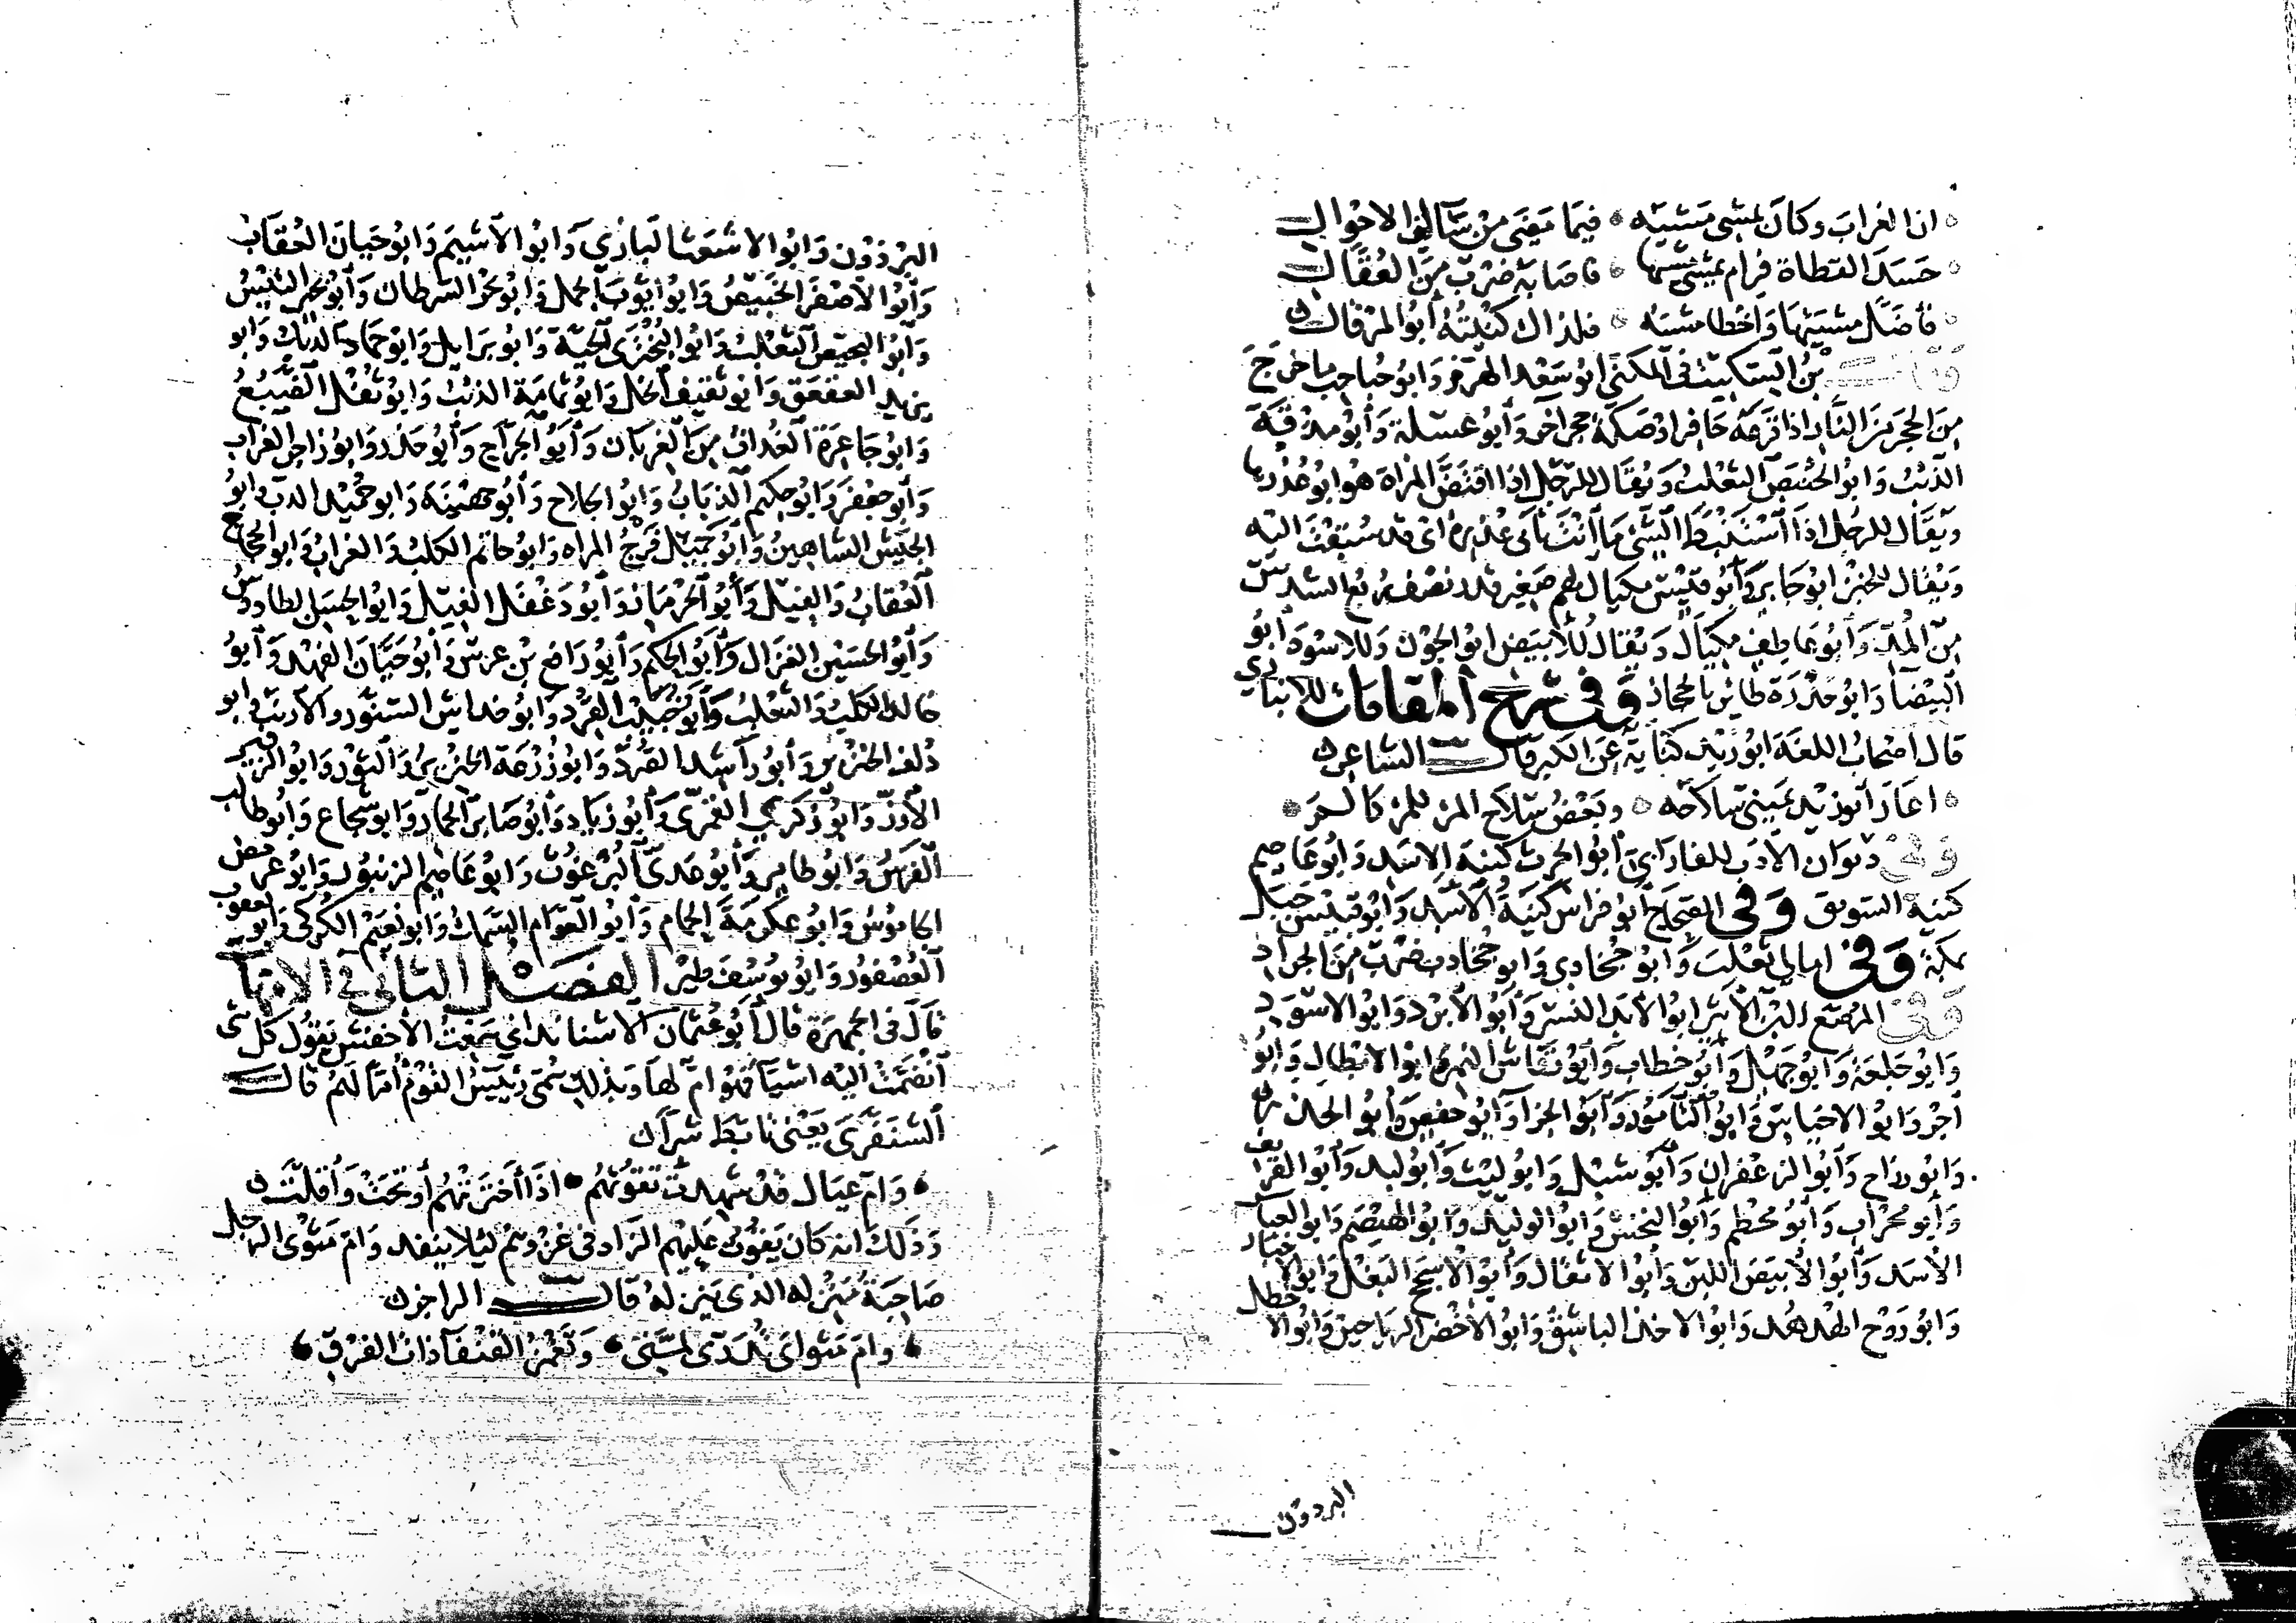 ان الغراب وكان يمشي مشيه فيما مضى من سالف الاحوال
حسد القطاة فرام يمشي مشيها فاصابه ضرب من العقال
فاضل مشيتها واخطا مشيه فلذاك كنيته ابو المرقال
وقال بن السكيت في المكنى ابو سعد الهرم وابو حباحب ما خرج
من الحجر من النار اذا قرعه حافر او صكه حجر اخر وأبو عسلة وأبو مذقة
الذئب وابو الحنبص الثعلب ويقال للرجل اذا اقتض المراة هو ابو عذرها
ويقال للرجل اذا استنبط الشئ ما انت بابي عذره اى قد سبقت اليه
ويقال للخبز ابو جابر وأبو قبيس مكيال لهم صغير قدر نصف ربع السدس
من المد وأبو عاطف مكيال ويقال للابيض ابو الجون وللاسود أبو
البيضا وابو حذرة طائر بالحجاز وفي شرح المقامات للانباري
قال اصحاب اللغة ابو زيد كناية عن الكبر قال الشاعر
اعار ابو زيد يميني سلاحه وبعض سلاح المرء للمرء كالم
وفي ديوان الأدب للفارابى أبو الحرث كنية الاسد وابو عاصم
كنية السويق وفي الصحاح أبو فراس كنية الأسد وأبو قبيس جبل
بمكة وفي امالي ثعلب وابو جخادى وابو جخادب ضرب من الجراد
وفي المرصع لابن الأثير ابو الابد النسر وأبو الأبرد وابو الاسود
وابو جلعد وابو جهل وأبو خطاب وأبو رقاش النمر وابو الابطال وابو
اجر وابو الاخياس وابو التأمور وأبو الجرا وأبو حفص وأبو الخدر
وابو رزاح وأبو الزعفران وأبو شبل وابو ليث وأبو لبد وأبو الغريف
وأبو محراب وأبو محطم وأبو النحس وابو الوليد وابو الهيصم وابو العباس
الأسد وأبو الأبيض اللبن وأبو الاثقال وأبو الأسحج البغل وابو الاخبار
وابو روح الهدهد وابو الاخذ الباشق وابو الأخضر الرياحين وابو الاخطل
البرذون
البرذون وابو الاشعث البازي وابو الأشيم وابو حيان العقاب
وأبو الأصفر الخبيص وابو ايوب الجمل وابو بحر السرطان وأبو بحير التيس
وأبو البحيص الثعلب وابو البختري الحية وابو برايل وابو حماد الديك وابو
يزيد العقعق وابو ثقيف الخل وابو ثمامة الذئب وابو ثفل الضبع
وابو جاعرة الغداف من الغربان وأبو الجراح وأبو حذر وابو زاجر الغراب
وأبو جعفر وابو حكيم الذباب وابو الجلاح وأبو جهينة وابو حميد الدب وابو
الجيش الشاهين وأبو جميل فرج المراه وابو حاتم الكلب والغراب وابو الحجاج
العقاب والفيل وأبو الحرمان وأبو دغفل الفيل وابو الحسن الطاووس
وأبو الحسين الغزال وأبو الحكم وأبو راضع بن عرس وأبو حيان الفهد وأبو
خالد الكلب والثعلب وأبو حبيب القرد وابو خداش السنور والأرنب وابو
دلف الخنزير وأبو راشد القرد وابو زرعة الخنزير والثور وابو الزفير
الأوز وابو زكري القمري وأبو زياد وأبو صابر الحمار وابو شجاع وابو طالب
الفرس وابو طامر وأبو عدي البرغوث وابو عاصم الزنبور وابو عرمض
الجاموس وابو عكرمة الحمام وابو العوام السمك وابو نعيم الكركى وابو يعقوب
العصفور وابو يوسف طير الفصل الثاني في الامهات
قال في الجمهرة قال أبو عثمان الاشناندانى سمعت الأخفش يقول كل شي
انضمت اليه اشيا فهو ام لها وبذلك سمى رئيس القوم أما لهم قال
الشنفرى يعنى تابط شرا
وام عيال قد شهدت تقوتهم اذا أحترتهم أوتحت وأقلت
وذلك انه كان يقوت عليهم الزاد في غزوهم ليلا ينفد وام مثوى الرجل
صاحبة منزله الذي ينزله قال الراجز
وام مثواى تدرى لمتى وتغمز القنفاء ذات الفروة